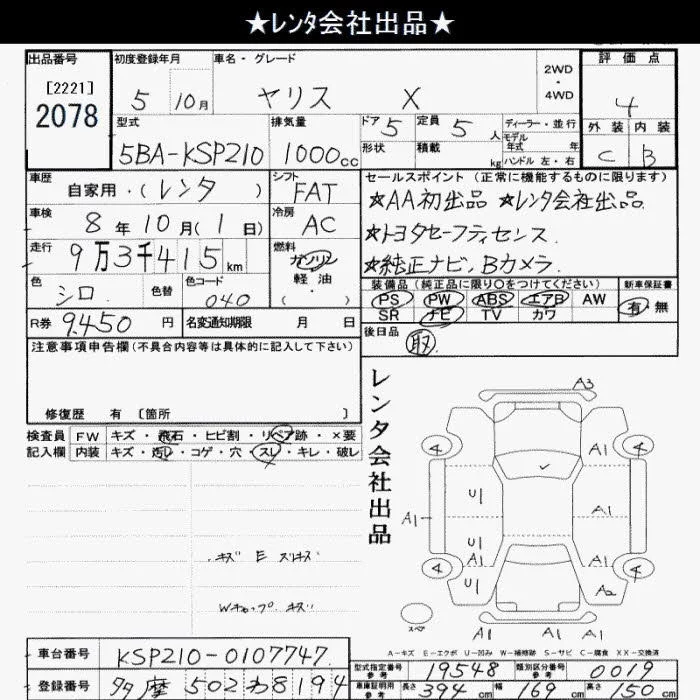 ★レンタ会社出品★
出品番号
[2221]
2078
初度登録年月
5 10月
車名・グレード
ヤリス X
2WD
・
4WD
評価点
4
外装 内装
C B
型式
5BA-KSP210
排気量
1000cc
ドア 5
定員 5人
形状
積載 kg
ディーラー・並行
モデル
年式 年
ハンドル 左・右
車歴
自家用・(レンタ)
シフト
FAT
車検
8年10月(1日)
冷房
AC
走行
9万3千415km
燃料
ガソリン
軽油
・
( )
色
シロ
色替
色コード
040
R券 9,450円
名変通知期限 月 日
セールスポイント (正常に機能するものに限ります)
★AA初出品 ★レンタ会社出品
★トヨタセーフティセンス
★純正ナビ、Bカメラ
装備品(純正品に限り○をつけてください)
PS PW ABS エアB AW
SR ナビ TV カワ
新車保証書
有・無
後日品
取
注意事項申告欄(不具合内容等は具体的に記入して下さい)
修復歴 有 〔箇所 〕
検査員
記入欄
FW キズ・飛石・ヒビ割・リペア跡・×要
内装 キズ・汚レ・コゲ・穴・スレ・キレ・破レ
キズ E スリキズ
Wキャップ キズ
レンタ会社出品
A3
4 A1 4
U1 A1
A1 U1 A1 A1
A1
4 U1 A2 4
スペア
A1 A1
A-キズ E-エクボ U-凹み W-補修跡 S-サビ C-腐食 XX-交換済
車台番号
KSP210-0107747
登録番号
多摩 502 わ 8194
型式指定番号
参考
19548
類別区分番号
参考
0019
車庫証明用
参考
長さ 394cm 幅 169cm 高さ 150cm